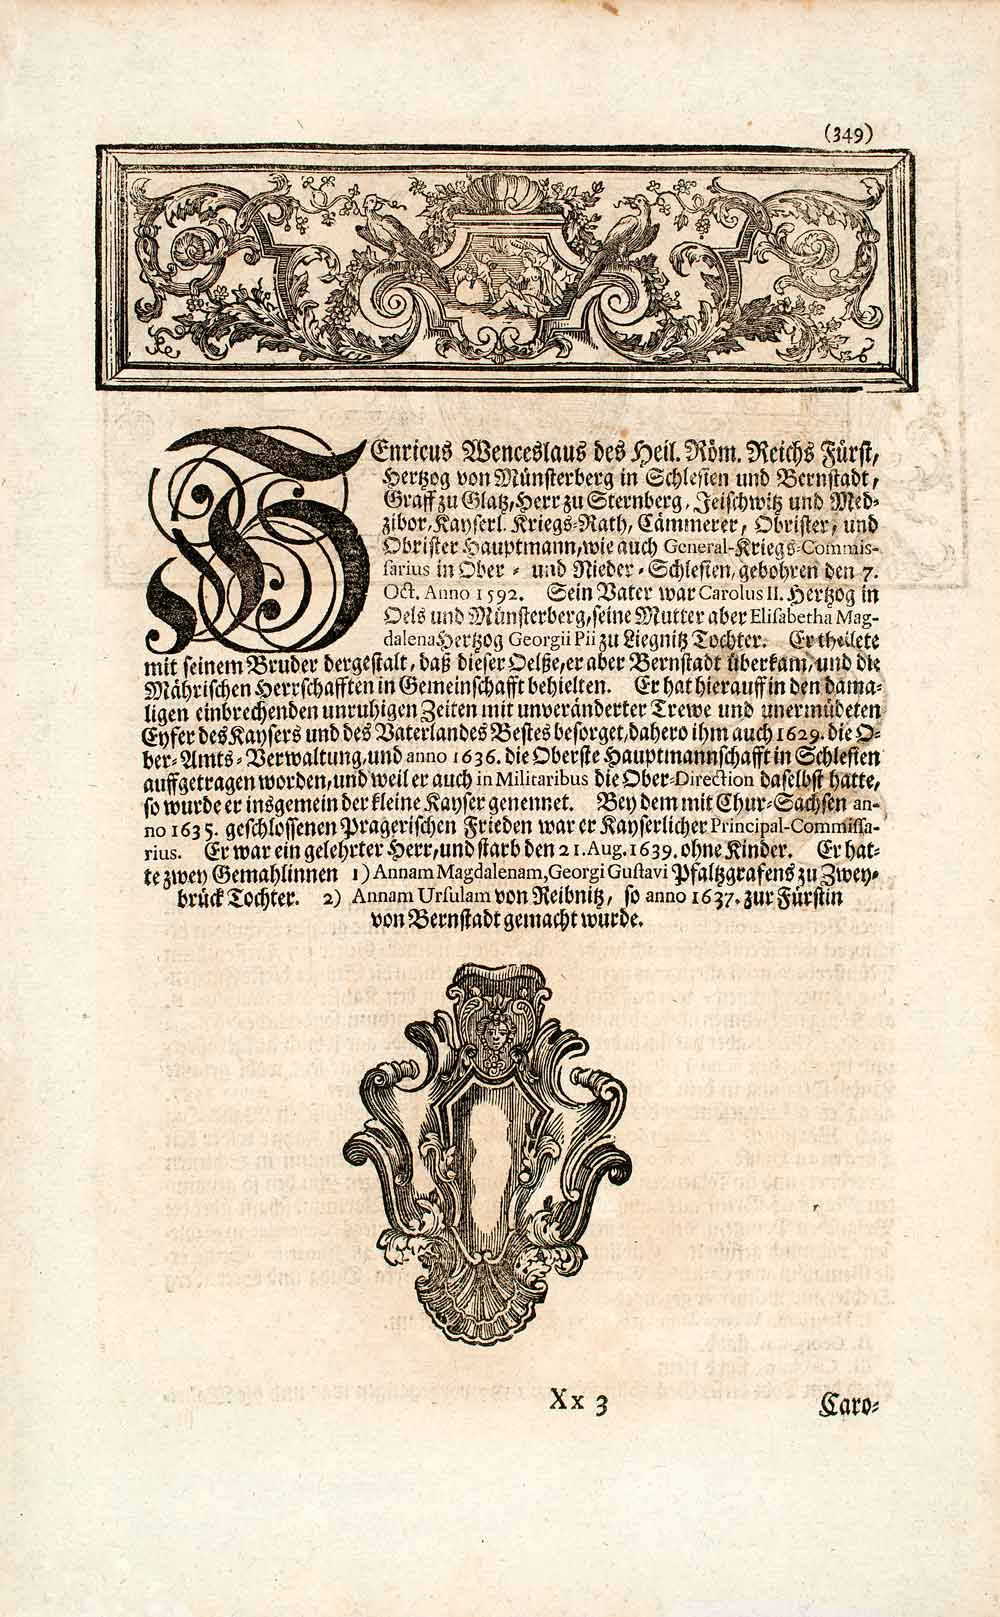 (349)
HEnricus Wenceslaus des Heil. Röm. Reichs Fürst,
Hertzog von Münsterberg in Schlesien und Bernstadt,
Graff zu Glatz, Herr zu Sternberg, Jeischwitz und Med-
zibor, Kayserl. Kriegs-Rath, Cämmerer, Obrister, und
Obrister Hauptmann, wie auch General-Kriegs-Commis-
sarius in Ober- und Nieder-Schlesien, gebohren den 7.
Oct. Anno 1592. Sein Vater war Carolus II. Hertzog in
Oels und Münsterberg, seine Mutter aber Elisabetha Mag-
dalena Hertzog Georgii Pii zu Liegnitz Tochter. Er theilete
mit seinem Bruder dergestalt, daß dieser Oelße, er aber Bernstadt überkam, und die
Mährischen Herrschafften in Gemeinschafft behielten. Er hat hierauff in den dama-
ligen einbrechenden unruhigen Zeiten mit unveränderter Trewe und unermüdeten
Eyfer des Kaysers und des Vaterlandes Bestes besorget, dahero ihm auch 1629. die O-
ber-Amts-Verwaltung, und anno 1636. die Oberste Hauptmannschafft in Schlesien
auffgetragen worden, und weil er auch in Militaribus die Ober-Direction daselbst hatte,
so wurde er insgemein der kleine Kayser genennet. Bey dem mit Chur-Sachsen an-
no 1635. geschlossenen Pragerischen Frieden war er Kayserlicher Principal-Commissa-
rius. Er war ein gelehrter Herr, und starb den 21. Aug. 1639. ohne Kinder. Er hat-
te zwey Gemahlinnen 1) Annam Magdalenam, Georgi Gustavi Pfaltzgrafens zu Zwey-
brück Tochter. 2) Annam Ursulam von Reibnitz, so anno 1637. zur Fürstin
von Bernstadt gemacht wurde.
Xx 3
Caro-